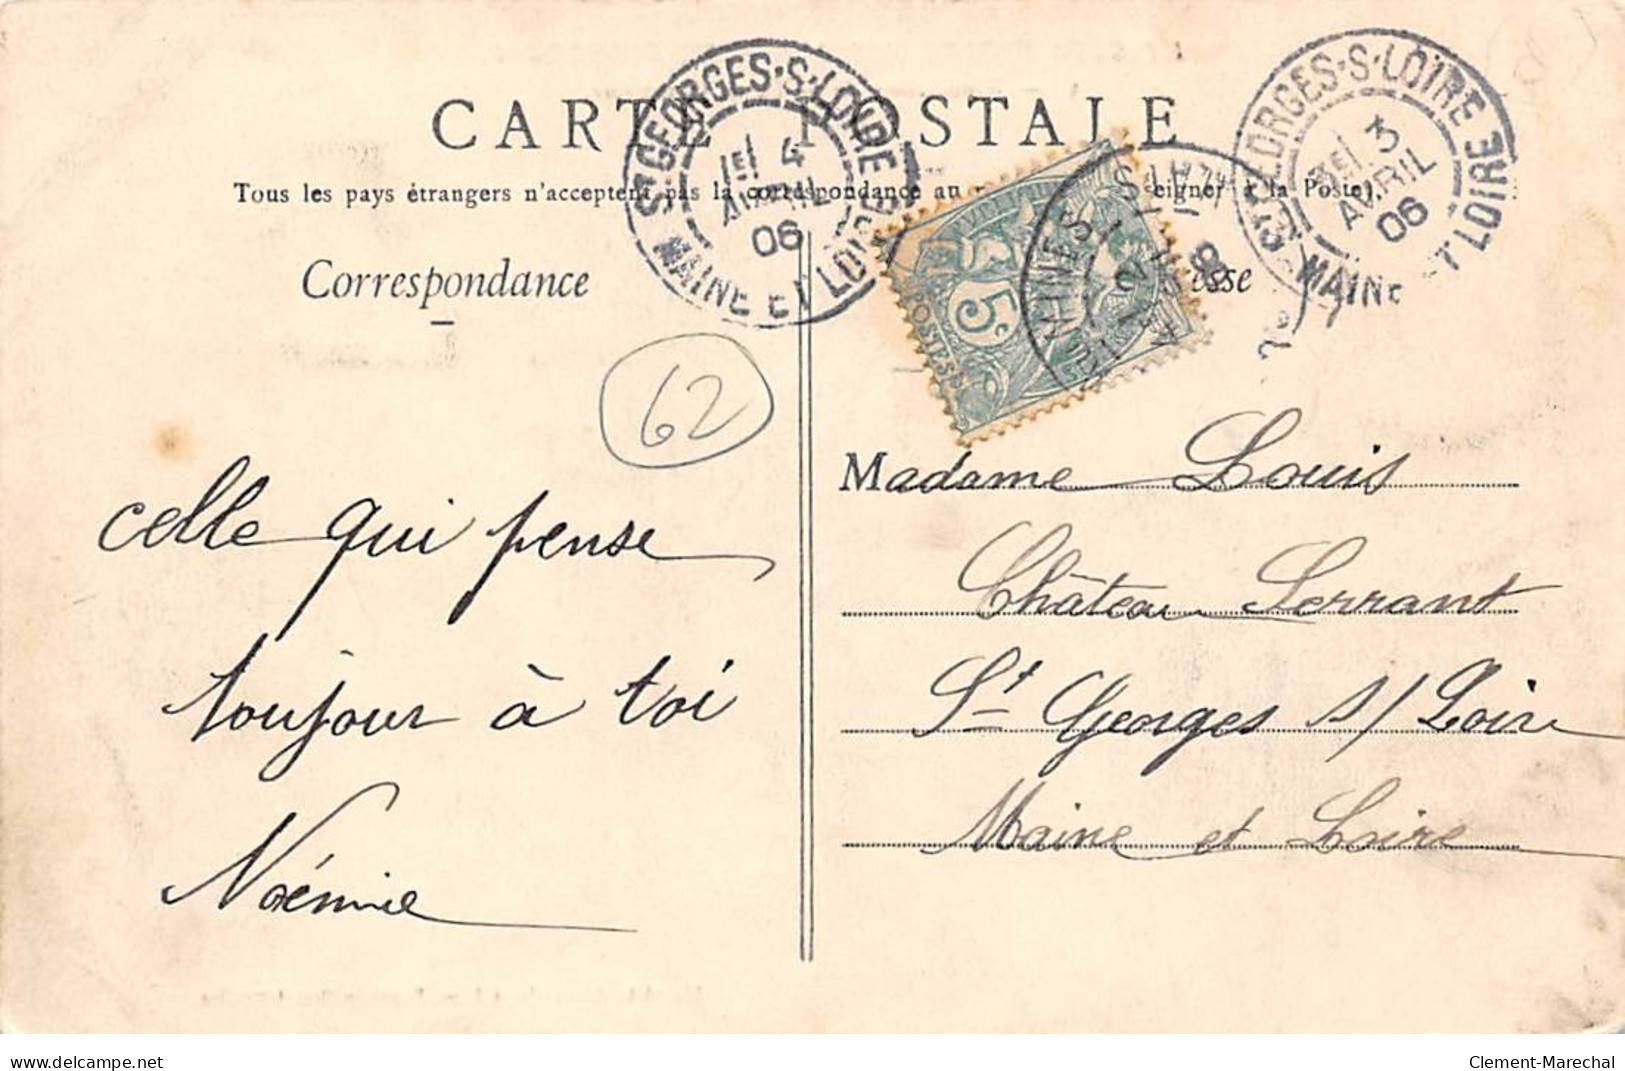 CARTE POSTALE
Tous les pays étrangers n'acceptent pas la correspondance au eigner à la Poste).
Correspondance
esse
ST GEORGES-S-LOIRE
1E/ 4
AVRIL
06
MAINE ET LOIRE
GEORGES-S-LOIRE
3
AVRIL
06
MAINE ET LOIRE
5
POSTES
62
celle qui pense
toujour à toi
Noémie
Madame Louis
Château Serrant
St Georges s/Loire
Maine et Loire
www.delcampe.net
Clement-Marechal